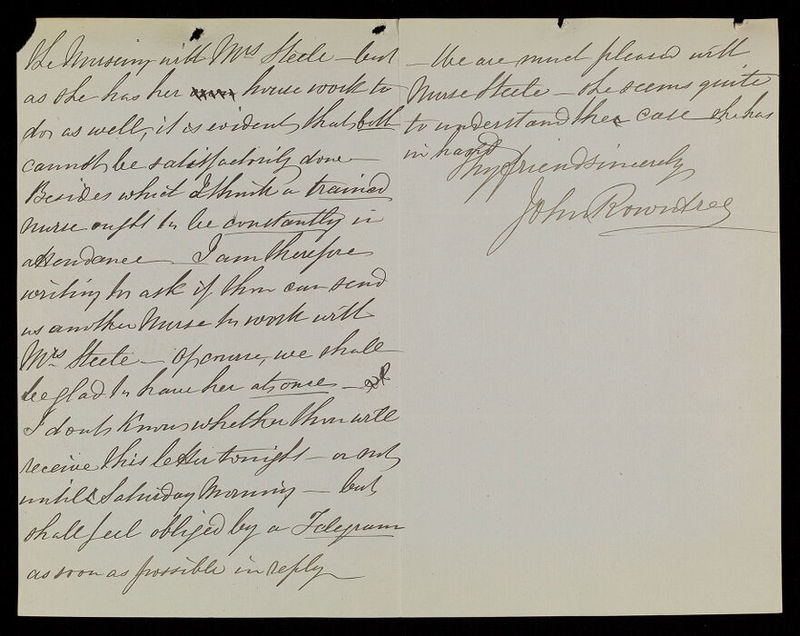 the Nursing with Mrs Steele – but
as she has her house work to
do, as well, it is evident that both
cannot be satisfactorily done –
Besides which I think a trained
nurse ought to be constantly in
attendance – I am therefore
writing to ask if thou can send
us another Nurse to work with
Mrs Steele – of course, we shall
be glad to have her at once –
I don't know whether thou will
receive this letter tonight – or not
until Saturday Morning – but
shall feel obliged by a Telegram
as soon as possible in reply –
– We are much pleased with
Nurse Steele – she seems quite
to understand the case she has
in hand
Thy friend sincerely
John Rowntree